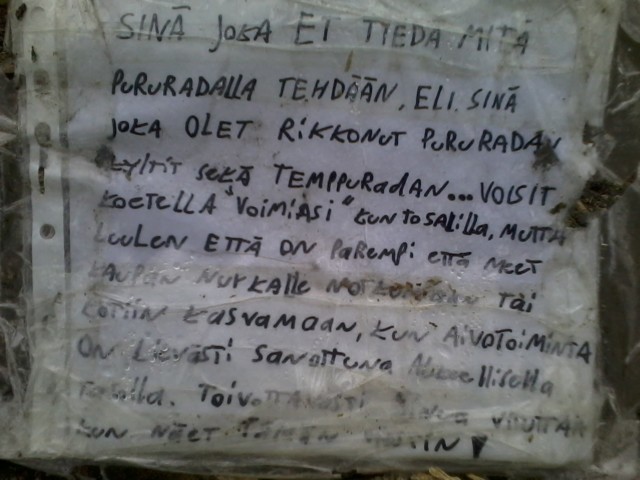 SINÄ JOKA EI TIEDÄ MITÄ
PURURADALLA TEHDÄÄN, ELI SINÄ
JOKA OLET RIKKONUT PURURADAN
KYLTIT SEKÄ TEMPPURADAN... VOISIT
KOETELLA "VOIMIASI" KUNTOSALILLA, MUTTA
LUULEN ETTÄ ON PAREMPI ETTÄ MEET
KAUPAN NURKALLE TAI
KOTIIN KASVAMAAN, KUN AIVOTOIMINTA
ON LIEVÄSTI SANOTTUNA
TASOLLA. TOIVOTTAVASTI VITUTTAA
KUN NÄET TÄMÄN